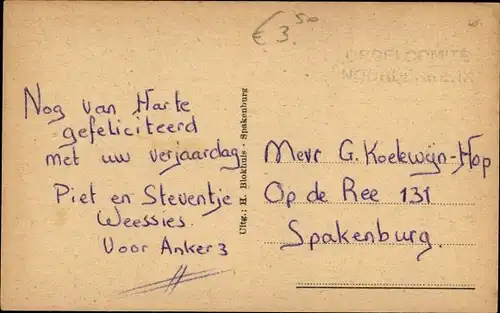 € 3.50
ORGELCOMITE
Nog van Harte
gefeliciteerd
met uw verjaardag
Piet en Steventje
Weessies.
Voor Anker 3
Uitg.: H. Blokhuis - Spakenburg
Mevr G. Koelewijn-Hop
Op de Ree 131
Spakenburg.